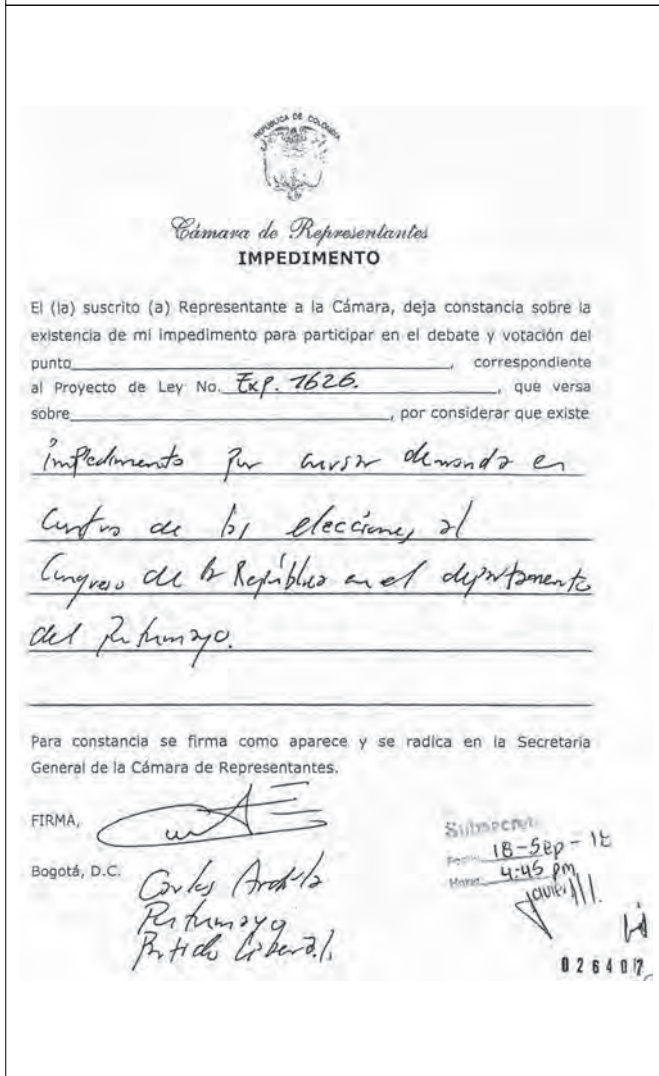 REPUBLICA DE COLOMBIA
Cámara de Representantes
IMPEDIMENTO
El (la) suscrito (a) Representante a la Cámara, deja constancia sobre la
existencia de mi impedimento para participar en el debate y votación del
punto , correspondiente
al Proyecto de Ley No. Exp. 1626. , que versa
sobre , por considerar que existe
impedimento por cursar demanda en
contra de las elecciones al
Congreso de la República en el departamento
del Putumayo.
Para constancia se firma como aparece y se radica en la Secretaria
General de la Cámara de Representantes.
FIRMA,
Bogotá, D.C.
Carlos Ardila
Putumayo
Partido Liberal.
18-Sep-
Hora 4:45 pm
Javier
026407